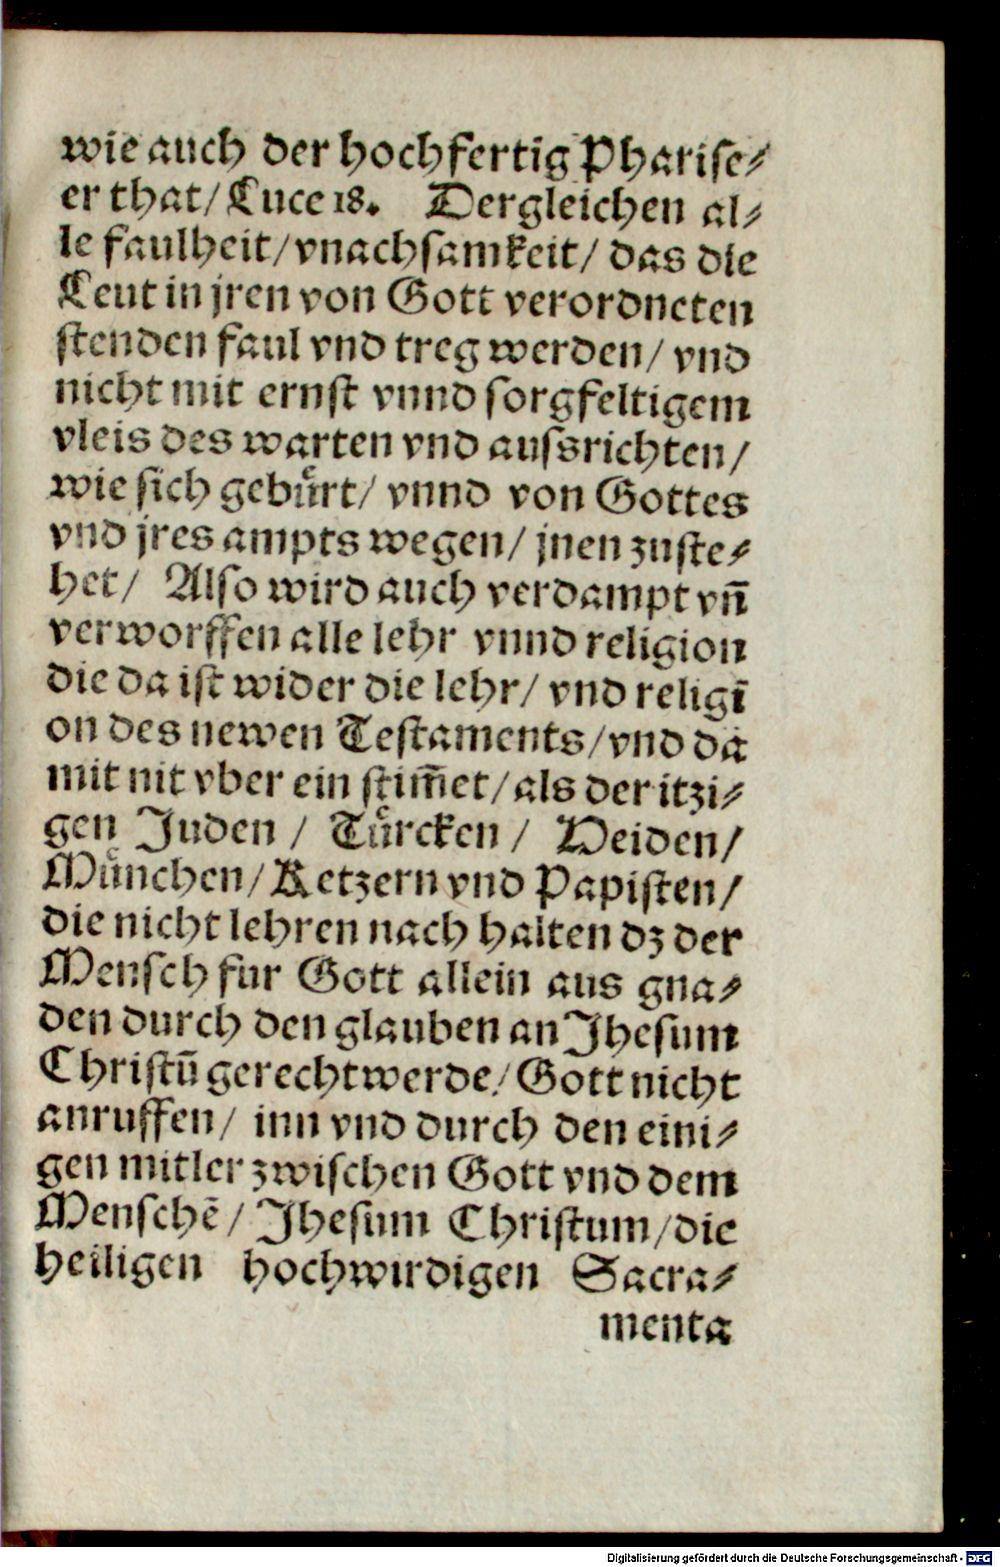 wie auch der hochfertig Pharise⸗
er that/ Luce 18. Dergleichen al⸗
le faulheit/ vnachsamkeit/ das die
Leut in jren von Gott verordneten
stenden faul vnd treg werden/ vnd
nicht mit ernst vnnd sorgfeltigem
vleis des warten vnd aussrichten/
wie sich gebuͤrt/ vnnd von Gottes
vnd jres ampts wegen/ jnen zuste⸗
het/ Also wird auch verdampt vn̄
verworffen alle lehr vnnd religion
die da ist wider die lehr/ vnd religī
on des newen Testaments/ vnd da
mit nit vber ein stim̄et/ als der itzi⸗
gen Juden / Tuͤrcken / Heiden/
Muͤnchen/ Ketzern vnd Papisten/
die nicht lehren nach halten dz der
Mensch fur Gott allein aus gna⸗
den durch den glauben an Jhesum
Christū gerecht werde/ Gott nicht
anruffen/ inn vnd durch den eini⸗
gen mitler zwischen Gott vnd dem
Menschē/ Jhesum Christum/ die
heiligen hochwirdigen Sacra⸗
menta
Digitalisierung gefördert durch die Deutsche Forschungsgemeinschaft - DFG